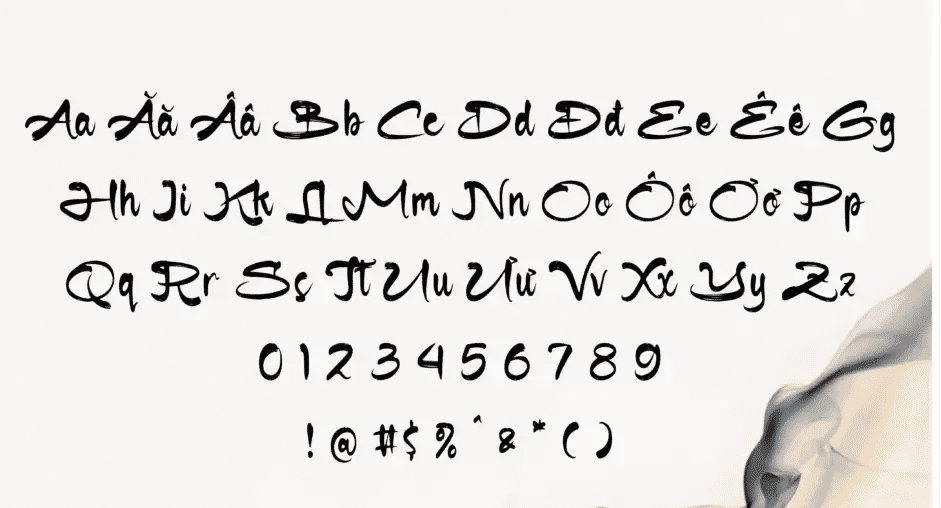 Aa Ăă Ââ Bb Cc Dd Đđ Ee Êê Gg
Hh Ii Kk Ll Mm Nn Oo Ôô Ơơ Pp
Qq Rr Ss Tt Uu Ưư Vv Xx Yy Zz
0 1 2 3 4 5 6 7 8 9
! @ # $ % ^ & * ( )